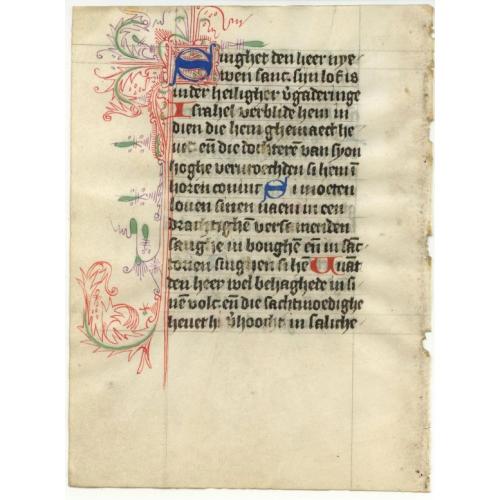 Singhet den heer nye
wen sanc. sijn lof is
in der heiligher v̄gaderinge
Israhel verblide hem in
dien die hem ghemaect he
uet eñ die dochterē van syon
hoghe vervroechden si hem ī
horen coninc Si moeten
louen sinen naem in een
drachtighē versamenden
sanghe in bonghē eñ in sāc
toren singhen si hē Wāt
den heer wel behaghede in si
nē volc. eñ die sachtmoedighe
heuet hi v̄hoocht in saliche